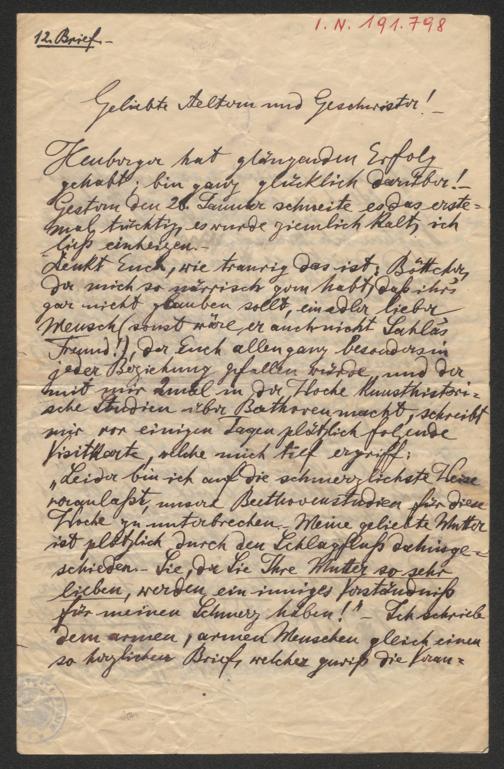 I. N. 191.798
12. Brief.–
Geliebte Aeltern und Geschwister! –
Heuberger hat glänzenden Erfolg
gehabt; bin ganz glücklich darüber! –
Gestern den 26. Jänner schneite es das erste=
mal tüchtig, es wurde ziemlich kalt, ich
ließ einheizen.–
Denkt Euch, wie traurig das ist: Böttcher,
der mich so närrisch gern habt, daß ihr's
gar nicht glauben sollt, ein edler lieber
Mensch (sonst wäre er auch nicht Sahla's
Freund!), der Euch allen ganz besonders in
jeder Beziehung gefallen würde, und der
mit mir 2mal in der Woche kunsthistori=
sche Studien über Beethoven macht, schreibt
mir vor einigen Tagen plötzlich folgende
Visitkarte, welche mich tief ergriff:
„Leider bin ich auf die schmerzlichste Weise
veranlaßt, unsere Beethovenstudien für diese
Woche zu unterbrechen.– Meine geliebte Mutter
ist plötzlich durch den Schlagfluß dahinge=
schieden.– Sie, der Sie Ihre Mutter so sehr
lieben, werden ein inniges Verständniß
für meinen Schmerz haben!" – Ich schriebe
dem armen, armen Menschen gleich einen
so herzlichen Brief, welcher gewiß die Veran=